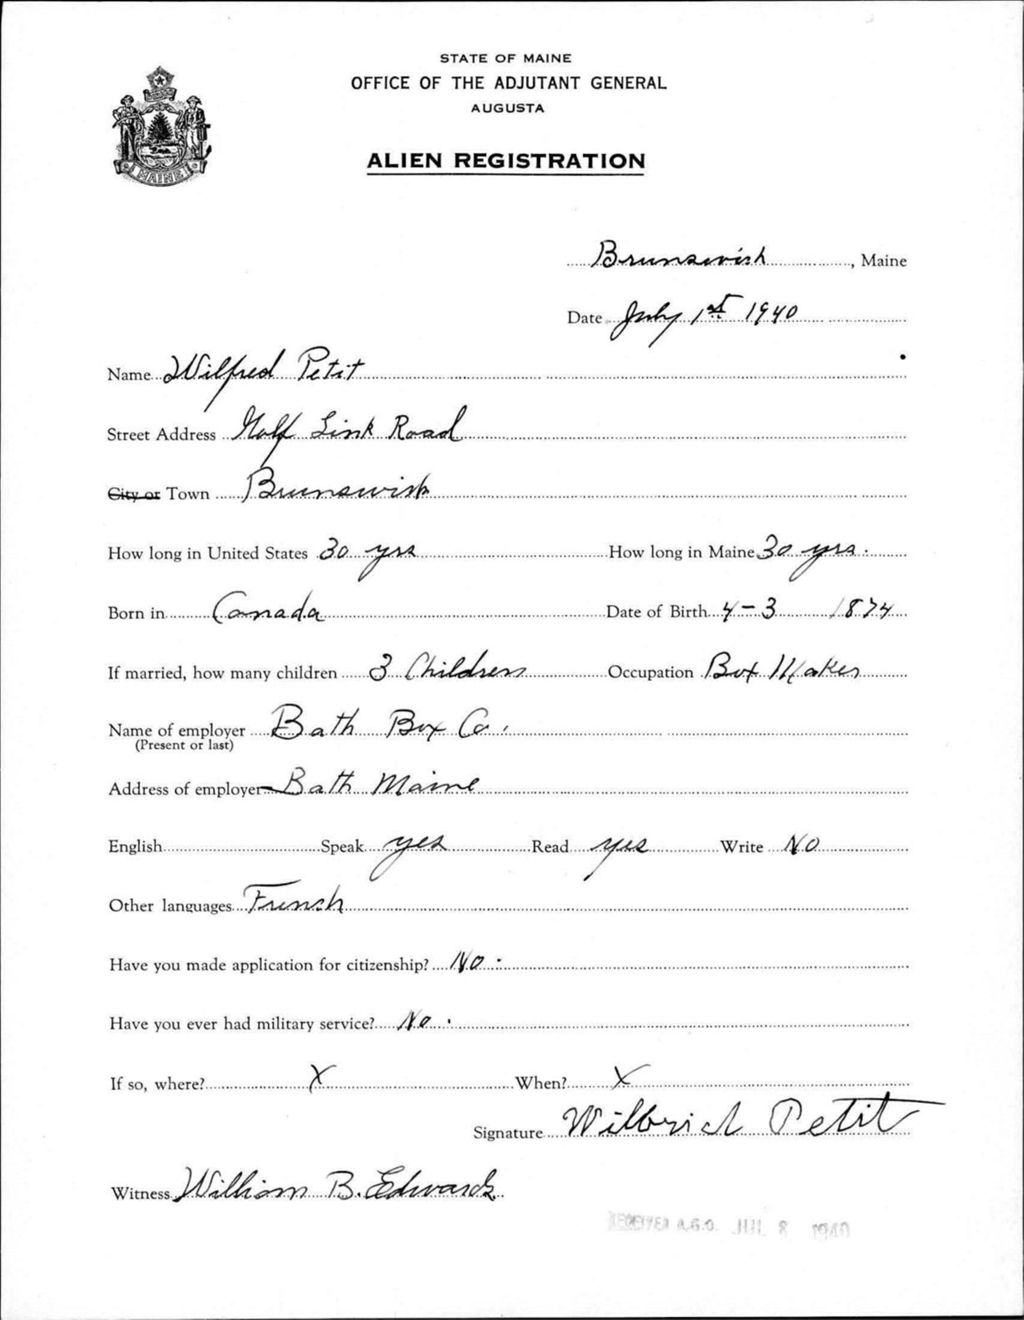 STATE OF MAINE
OFFICE OF THE ADJUTANT GENERAL
AUGUSTA
ALIEN REGISTRATION
MAINE
Brunswick, Maine
Date July 1st 1940
Name Wilfred Petit
Street Address Golf Link Road
City or Town Brunswick
How long in United States 30 yrs How long in Maine 30 yrs.
Born in Canada Date of Birth 4-3 1874
If married, how many children 3 Children Occupation Box Maker
Name of employer Bath Box Co.
(Present or last)
Address of employer Bath Maine
English Speak yes Read yes Write No
Other languages French
Have you made application for citizenship? No.
Have you ever had military service? No.
If so, where? X When? X
Signature Petit
Witness William B. Edwards
RECEIVED A.G.O. JUL 8 1940